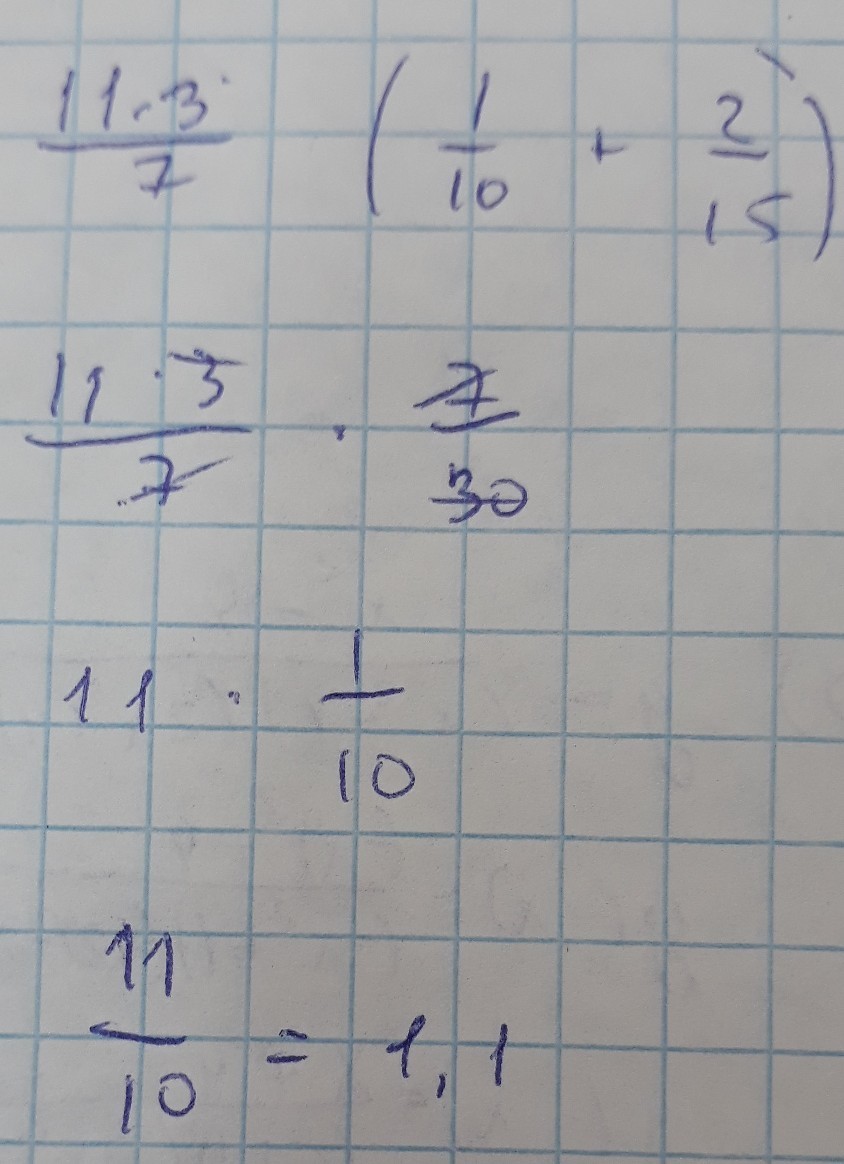 11·3/7 (1/10 + 2/15)
11·3/7 · 7/30
11 · 1/10
11/10 = 1,1